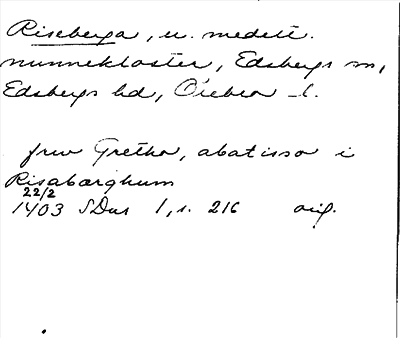 Riseberga, u. medelt.
nunnekloster, Edsbergs sn,
Edsbergs hd, Örebro l.
fru Gretha, abatissa i
Risabærghum
22/2
1403 SDns 1, s. 216 orig.